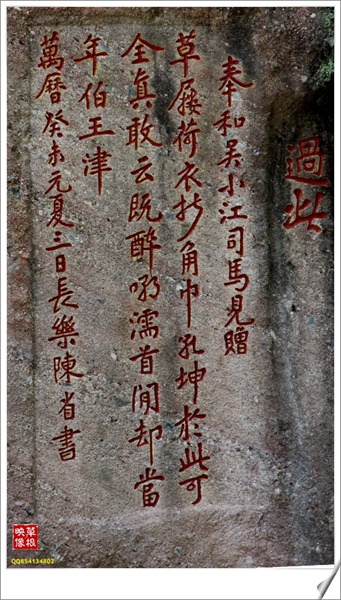 過此
奉和吳小江司馬見贈
草屨荷衣折角巾乾坤於此可
全真敢云既醉濡首閒却當
年伯王津
萬曆癸未元夏三日長樂陳省書
草根
映像
QQ854134802